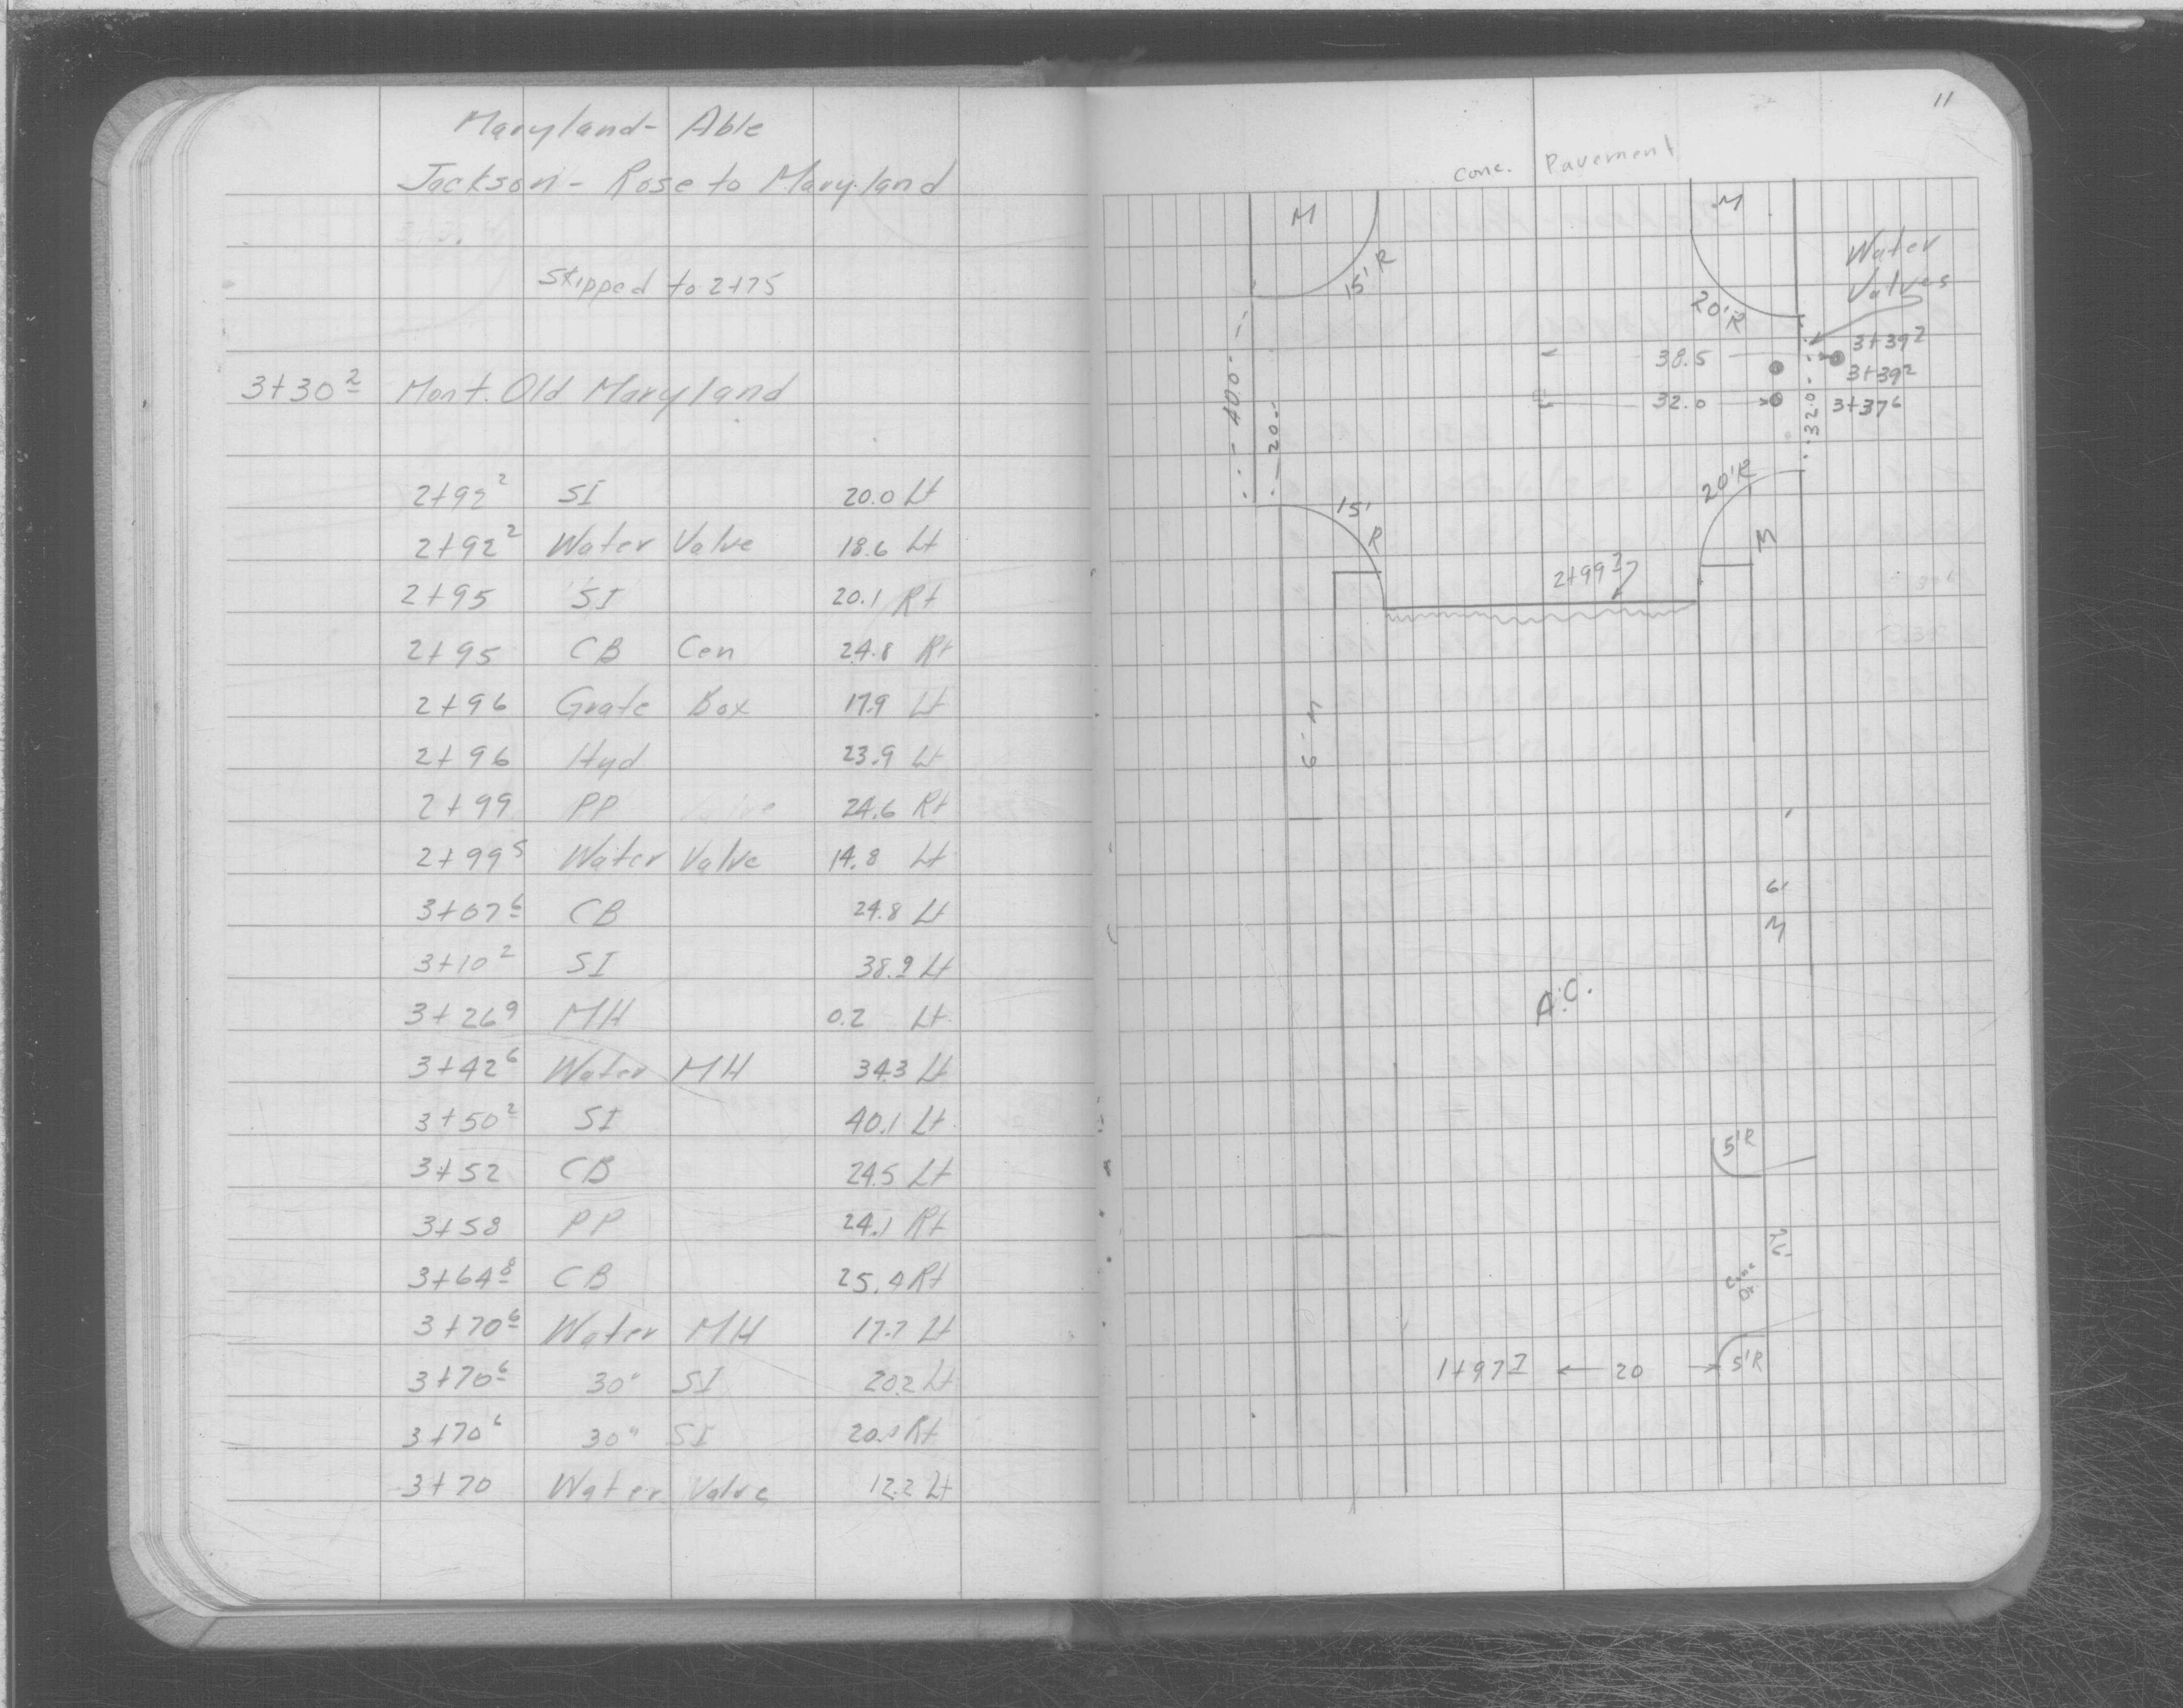 Maryland - Able
Jackson - Rose to Maryland
Skipped to 2+75
3+30² Mont. Old Maryland
2+92² SI 20.0 Lt
2+92² Water Valve 18.6 Lt
2+95 SI 20.1 Rt
2+95 CB Cen 24.8 Rt
2+96 Grate Box 17.9 Lt
2+96 Hyd 23.9 Lt
2+99 PP 24.6 Rt
2+99⁵ Water Valve 14.8 Lt
3+07⁶ CB 24.8 Lt
3+10² SI 38.9 Lt
3+26⁹ MH 0.2 Lt
3+42⁶ Water MH 34.3 Lt
3+50² SI 40.1 Lt
3+52 CB 24.5 Lt
3+58 PP 24.1 Rt
3+64⁸ CB 25.4 Rt
3+70⁶ Water MH 17.7 Lt
3+70⁶ 30" SI 20.2 Lt
3+70⁶ 30" SI Rt
3+70 Water Valve 12.2 Lt
11
Conc. Pavement
M M
15' R
20' R
Water
Valves
38.5 3+39²
3+39²
32.0 3+37⁶
40.0
20
32.0
15'
R
20'R
M
2+99⁷
6' M
6'
M
A.C.
5'R
Conc
Dr.
1+97⁷ 20 5'R